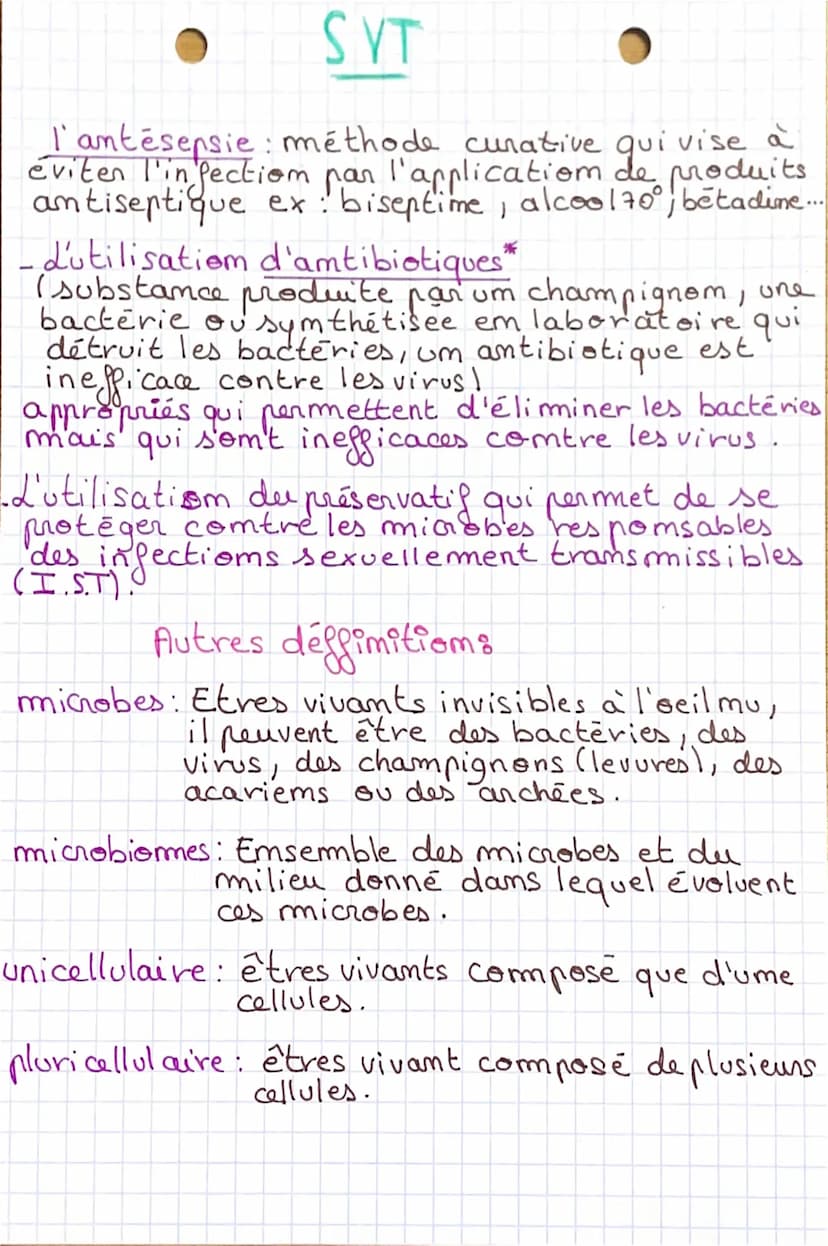 SVT
l'antésepsie : méthode curative qui vise à
éviter l'infection par l'application de produits
antiseptique ex : biseptine, alcool 70°, bétadine...
- L'utilisation d'antibiotiques*
(substance produite par un champignon, une
bactérie ou synthétisée en laboratoire qui
détruit les bactéries, un antibiotique est
inefficace contre les virus)
appropriés qui permettent d'éliminer les bactéries
mais qui sont inefficaces contre les virus.
- L'utilisation du préservatif qui permet de se
protéger contre les microbes responsables
des infections sexuellement transmissibles
(I.S.T).
Autres déffinitions
microbes : Etres vivants invisibles à l'oeil nu,
il peuvent être des bactéries, des
virus, des champignons (levures), des
acariens ou des archées.
microbiomes : Ensemble des microbes et du
milieu donné dans lequel évoluent
ces microbes.
unicellulaire : êtres vivants composé que d'une
cellules.
pluricellulaire : êtres vivant composé de plusieurs
cellules.